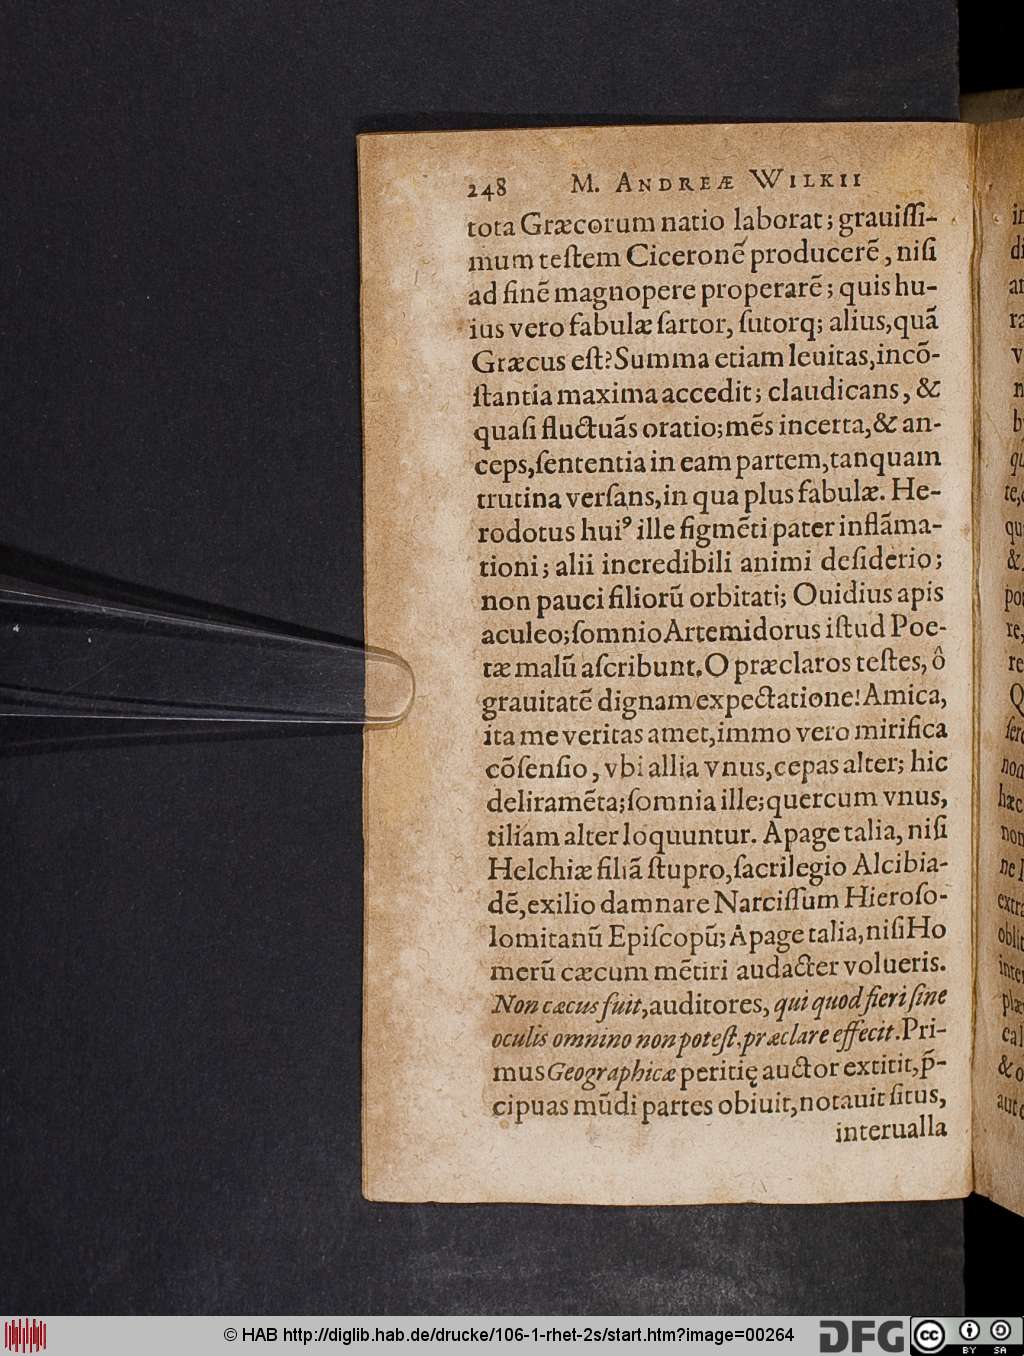 248 M. ANDREÆ WILKII
tota Græcorum natio laborat; grauiſſi-
mum teſtem Ciceronẽ producerẽ, niſi
ad finẽ magnopere properarẽ; quis hu-
ius vero fabulæ ſartor, ſutorq; alius, quã
Græcus eſt? Summa etiam leuitas, incõ-
ſtantia maxima accedit; claudicans, &
quaſi fluctuãs oratio; mẽs incerta, & an-
ceps, ſententia in eam partem, tanquam
trutina verſans, in qua plus fabulæ. He-
rodotus huiꝰ ille figmẽti pater inflãma-
tioni; alii incredibili animi deſiderio;
non pauci filiorũ orbitati; Ouidius apis
aculeo; ſomnio Artemidorus iſtud Poe-
tæ malũ aſcribunt. O præclaros teſtes, ô
grauitatẽ dignam expectatione! Amica,
ita me veritas amet, immo vero mirifica
cõſenſio, vbi allia vnus, cepas alter; hic
deliramẽta; ſomnia ille; quercum vnus,
tiliam alter loquuntur. Apage talia, niſi
Helchiæ filiã ſtupro, ſacrilegio Alcibia-
dẽ, exilio damnare Narciſſum Hieroſo-
lomitanũ Epiſcopũ; Apage talia, niſi Ho
merũ cæcum mẽtiri audacter volueris.
Non cæcus fuit, auditores, qui quod fieri ſine
oculis omnino non poteſt, præclare effecit. Pri-
mus Geographicæ peritię auctor extitit, p̃-
cipuas mũdi partes obiuit, notauit ſitus,
interualla
© HAB http://diglib.hab.de/drucke/106-1-rhet-2s/start.htm?image=00264
DFG
cc
BY SA